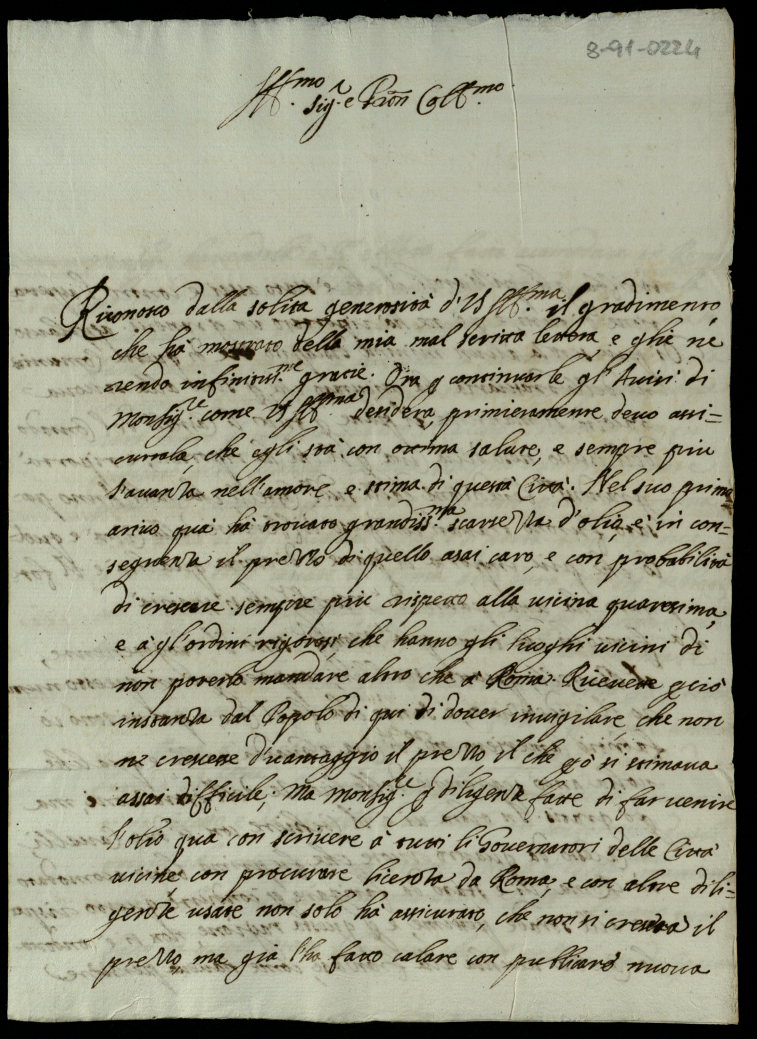 8-91-0224
Ill.mo Sig.r e Pron Coll.mo
Riconosco dalla solita generosità d'VS Ill.ma il gradimento
che hà mostrato della mia mal scritta lettera e glie né
rendo infinitiss.me gratie. Ora p continuarle gl'Avisi di
Monsig.re come VS Ill.ma desidera, primieramente devo assi=
curarla, che egli stà con ottima salute, e sempre più
s'avanza nell'amore e stima di questa Città. Nel suo primo
arivo quà hà trovato grandiss.ma scarsezza d'olio, e in con=
seguenza il prezzo di quello assai caro, e con probabilità
di crescere sempre più rispetto alla vicina quaresima,
e à gl'ordini rigorosi, che hanno gli luoghi vicini di
non poterlo mandare altro che à Roma. Ricevette p ciò
instanza dal Popolo di qui di dover invigilare, che non
ne crescesse d'vantaggio il prezzo il che p ò si stimava
assai difficile; Ma Monsig.re p diligenze fatte di far venire
l'olio qua con scrivere à tutti li Governatori delle Città
vicine con procurare licenza da Roma, e con altre dili=
genze usate non solo hà assicurato, che non si cresca il
prezzo, ma già l'ha fatto calare con publicare nuova